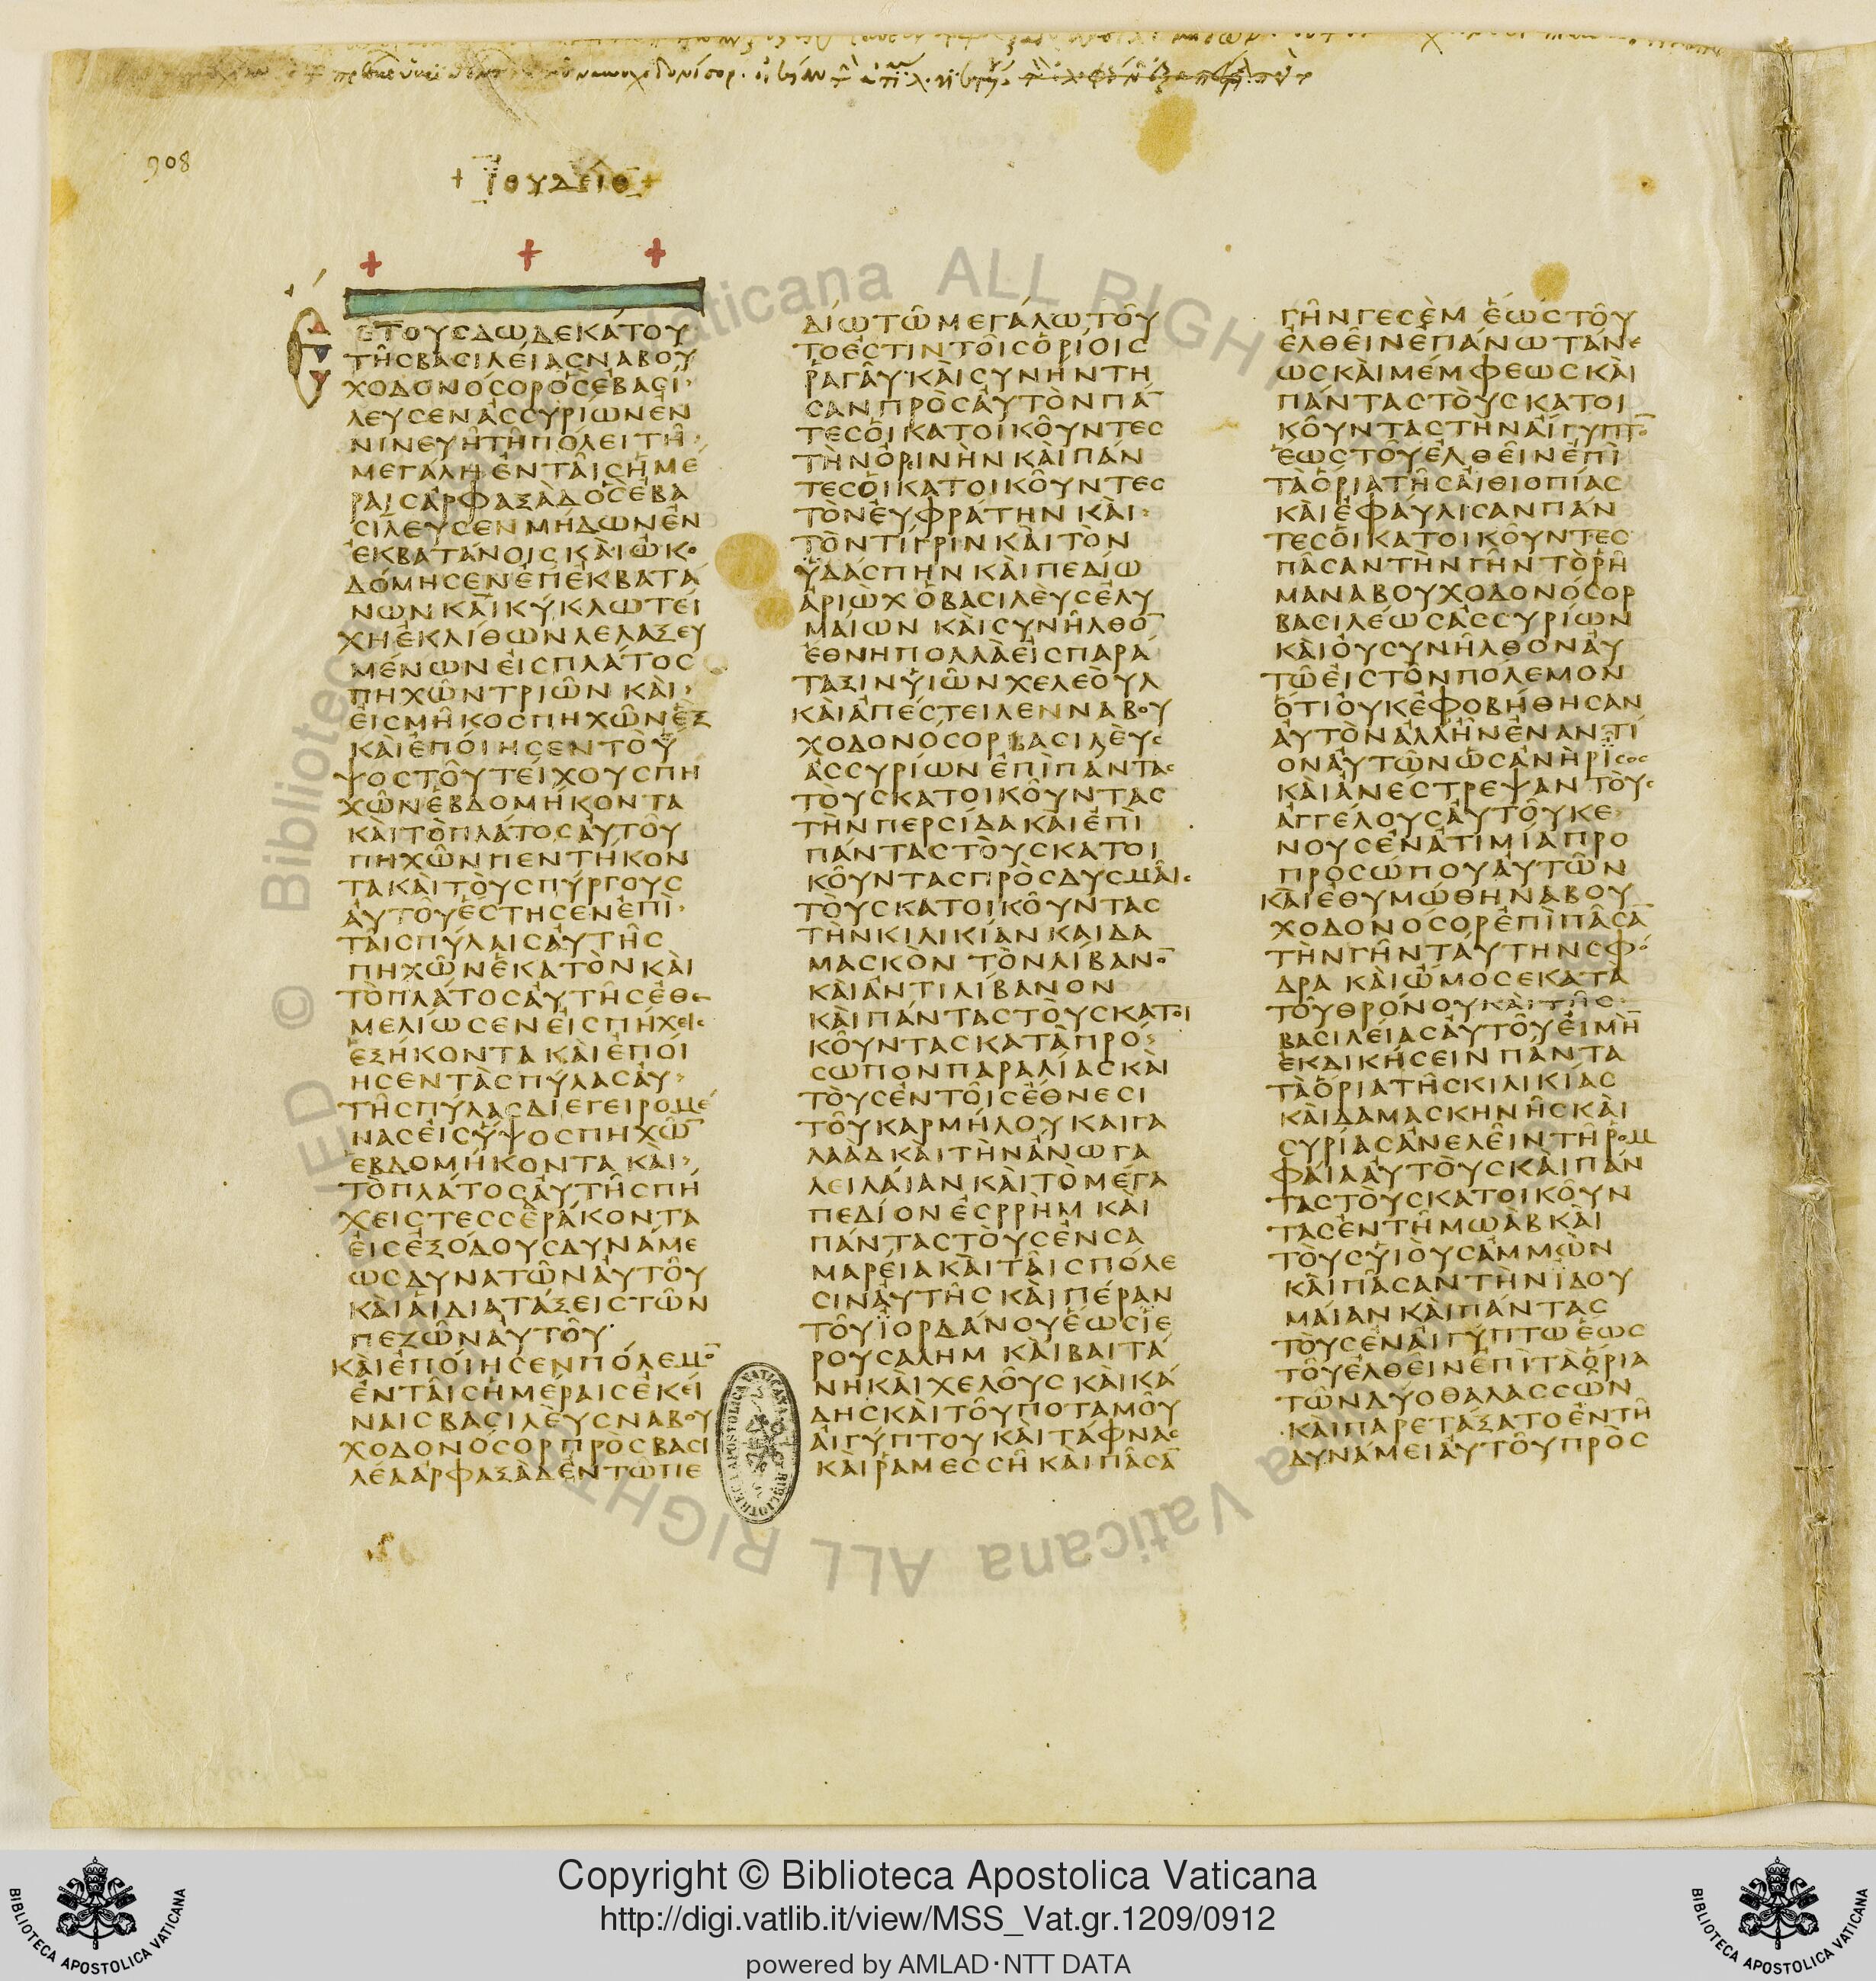 908
+ ΪΟΥΔΕΙΘ +
ΕΤΟΥΣΔΩΔΕΚΑΤΟΥ
ΤΗΣΒΑΣΙΛΕΙΑΣΝΑΒΟΥ
ΧΟΔΟΝΟΣΟΡΟΣΕΒΑΣΙ
ΛΕΥΣΕΝΑΣΣΥΡΙΩΝΕΝ
ΝΙΝΕΥΗΤΗΠΟΛΕΙΤΗ
ΜΕΓΑΛΗΕΝΤΑΙΣΗΜΕ
ΡΑΙΣΑΡΦΑΞΑΔΟΣΕΒΑ
ΣΙΛΕΥΣΕΝΜΗΔΩΝΕΝ
ΕΚΒΑΤΑΝΟΙΣΚΑΙΩΚΟ
ΔΟΜΗΣΕΝΕΠΕΚΒΑΤΑ
ΝΩΝΚΑΙΚΥΚΛΩΤΕΙ
ΧΗΕΚΛΙΘΩΝΛΕΛΑΞΕΥ
ΜΕΝΩΝΕΙΣΠΛΑΤΟΣ
ΠΗΧΩΝΤΡΙΩΝ ΚΑΙ
ΕΙΣΜΗΚΟΣΠΗΧΩΝΕΞ
ΚΑΙΕΠΟΙΗΣΕΝΤΟΥ
ΨΟΣΤΟΥΤΕΙΧΟΥΣΠΗ
ΧΩΝΕΒΔΟΜΗΚΟΝΤΑ
ΚΑΙΤΟΠΛΑΤΟΣΑΥΤΟΥ
ΠΗΧΩΝΠΕΝΤΗΚΟΝ
ΤΑΚΑΙΤΟΥΣΠΥΡΓΟΥΣ
ΑΥΤΟΥΕΣΤΗΣΕΝΕΠΙ
ΤΑΙΣΠΥΛΑΙΣΑΥΤΗΣ
ΠΗΧΩΝΕΚΑΤΟΝΚΑΙ
ΤΟΠΛΑΤΟΣΑΥΤΗΣΕΘΕ
ΜΕΛΙΩΣΕΝΕΙΣΠΗΧΕΙΣ
ΕΞΗΚΟΝΤΑΚΑΙΕΠΟΙ
ΗΣΕΝΤΑΣΠΥΛΑΣΑΥ
ΤΗΣΠΥΛΑΣΔΙΕΓΕΙΡΟΜΕ
ΝΑΣΕΙΣΥΨΟΣΠΗΧΩ̅
ΕΒΔΟΜΗΚΟΝΤΑ ΚΑΙ
ΤΟΠΛΑΤΟΣΑΥΤΗΣΠΗ
ΧΕΙΣΤΕΣΣΕΡΑΚΟΝΤΑ
ΕΙΣΕΞΟΔΟΥΣΔΥΝΑΜΕ
ΩΣΔΥΝΑΤΩΝΑΥΤΟΥ
ΚΑΙΑΙΔΙΑΤΑΞΕΙΣΤΩΝ
ΠΕΖΩΝΑΥΤΟΥ
ΚΑΙΕΠΟΙΗΣΕΝΠΟΛΕΜΟ̅
ΕΝΤΑΙΣΗΜΕΡΑΙΣΕΚΕΙ
ΝΑΙΣΒΑΣΙΛΕΥΣΝΑΒΟΥ
ΧΟΔΟΝΟΣΟΡΠΡΟΣΒΑΣΙ
ΛΕΑΑΡΦΑΞΑΔΕΝΤΩΠΕ
ΔΙΩΤΩΜΕΓΑΛΩΤΟΥ
ΤΟΕΣΤΙΝΤΟΙΣΟΡΙΟΙΣ
ΡΑΓΑΥΚΑΙΣΥΝΗΝΤΗ
ΣΑΝΠΡΟΣΑΥΤΟΝΠΑ̅
ΤΕΣΟΙΚΑΤΟΙΚΟΥΝΤΕΣ
ΤΗΝΟΡΙΝΗΝΚΑΙΠΑΝ
ΤΕΣΟΙΚΑΤΟΙΚΟΥΝΤΕΣ
ΤΟΝΕΥΦΡΑΤΗΝ ΚΑΙ
ΤΟΝΤΙΓΡΙΝΚΑΙΤΟΝ
ΥΔΑΣΠΗΝ ΚΑΙΠΕΔΙΩ
ΑΡΙΩΧΟΒΑΣΙΛΕΥΣΕΛΥ
ΜΑΙΩΝ ΚΑΙΣΥΝΗΛΘΟ̅
ΕΘΝΗΠΟΛΛΑΕΙΣΠΑΡΑ
ΤΑΞΙΝΥΙΩΝΧΕΛΕΟΥΛ
ΚΑΙΑΠΕΣΤΕΙΛΕΝΝΑΒΟΥ
ΧΟΔΟΝΟΣΟΡΒΑΣΙΛΕΥΣ
ΑΣΣΥΡΙΩΝΕΠΙΠΑΝΤΑΣ
ΤΟΥΣΚΑΤΟΙΚΟΥΝΤΑΣ
ΤΗΝΠΕΡΣΙΔΑΚΑΙΕΠΙ
ΠΑΝΤΑΣΤΟΥΣΚΑΤΟΙ
ΚΟΥΝΤΑΣΠΡΟΣΔΥΣΜΑΙΣ
ΤΟΥΣΚΑΤΟΙΚΟΥΝΤΑΣ
ΤΗΝΚΙΛΙΚΙΑΝΚΑΙΔΑ
ΜΑΣΚΟΝ ΤΟΝΛΙΒΑΝΟ̅
ΚΑΙΑΝΤΙΛΙΒΑΝΟΝ
ΚΑΙΠΑΝΤΑΣΤΟΥΣΚΑΤΟΙ
ΚΟΥΝΤΑΣΚΑΤΑΠΡΟ
ΣΩΠΟΝΠΑΡΑΛΙΑΣΚΑΙ
ΤΟΥΣΕΝΤΟΙΣΕΘΝΕΣΙ
ΤΟΥΚΑΡΜΗΛΟΥΚΑΙΓΑ
ΛΑΑΔΚΑΙΤΗΝΑΝΩΓΑ
ΛΕΙΛΑΙΑΝΚΑΙΤΟΜΕΓΑ
ΠΕΔΙΟΝΕΣΡΡΗΜ ΚΑΙ
ΠΑΝΤΑΣΤΟΥΣΕΝΣΑ
ΜΑΡΕΙΑΚΑΙΤΑΙΣΠΟΛΕ
ΣΙΝΑΥΤΗΣ ΚΑΙΠΕΡΑΝ
ΤΟΥΪΟΡΔΑΝΟΥΕΩΣΪΕ
ΡΟΥΣΑΛΗΜ ΚΑΙΒΑΙΤΑ
ΝΗΚΑΙΧΕΛΟΥΣ ΚΑΙΚΑ
ΔΗΣΚΑΙΤΟΥΠΟΤΑΜΟΥ
ΑΙΓΥΠΤΟΥΚΑΙΤΑΦΝΑΣ
ΚΑΙΡΑΜΕΣΣΗ ΚΑΙΠΑΣΑ̅
ΓΗΝΓΕΣΕΜ ΕΩΣΤΟΥ
ΕΛΘΕΙΝΕΠΑΝΩΤΑΝΕ
ΩΣΚΑΙΜΕΜΦΕΩΣΚΑΙ
ΠΑΝΤΑΣΤΟΥΣΚΑΤΟΙ
ΚΟΥΝΤΑΣΤΗΝΑΙΓΥΠΤΟ̅
ΕΩΣΤΟΥΕΛΘΕΙΝΕΠΙ
ΤΑΟΡΙΑΤΗΣΑΙΘΙΟΠΙΑΣ
ΚΑΙΕΦΑΥΛΙΣΑΝΠΑΝ
ΤΕΣΟΙΚΑΤΟΙΚΟΥΝΤΕΣ
ΠΑΣΑΝΤΗΝΓΗΝΤΟΡΗ
ΜΑΝΑΒΟΥΧΟΔΟΝΟΣΟΡ
ΒΑΣΙΛΕΩΣΑΣΣΥΡΙΩΝ
ΚΑΙΟΥΣΥΝΗΛΘΟΝΑΥ
ΤΩΕΙΣΤΟΝΠΟΛΕΜΟΝ
ΟΤΙΟΥΚΕΦΟΒΗΘΗΣΑΝ
ΑΥΤΟΝΑΛΛΗΝΕΝΑΝΤΙ
ΟΝΑΥΤΩΝΩΣΑΝΗΡΪΣΟΣ
ΚΑΙΑΝΕΣΤΡΕΨΑΝΤΟΥΣ
ΑΓΓΕΛΟΥΣΑΥΤΟΥΚΕ
ΝΟΥΣΕΝΑΤΙΜΙΑΠΡΟ
ΠΡΟΣΩΠΟΥΑΥΤΩΝ
ΚΑΙΕΘΥΜΩΘΗΝΑΒΟΥ
ΧΟΔΟΝΟΣΟΡΕΠΙΠΑΣΑ̅
ΤΗΝΓΗΝΤΑΥΤΗΝΣΦΟ
ΔΡΑ ΚΑΙΩΜΟΣΕΚΑΤΑ
ΤΟΥΘΡΟΝΟΥΚΑΙΤΗΣ
ΒΑΣΙΛΕΙΑΣΑΥΤΟΥΕΙΜΗ̅
ΕΚΔΙΚΗΣΕΙΝ ΠΑΝΤΑ
ΤΑΟΡΙΑΤΗΣΚΙΛΙΚΙΑΣ
ΚΑΙΔΑΜΑΣΚΗΝΗΣΚΑΙ
ΣΥΡΙΑΣΑΝΕΛΕΙΝΤΗΡΟΜ
ΦΑΙΑΑΥΤΟΥΣΚΑΙΠΑΝ
ΤΑΣΤΟΥΣΚΑΤΟΙΚΟΥΝ
ΤΑΣΕΝΤΗΜΩΑΒΚΑΙ
ΤΟΥΣΥΙΟΥΣΑΜΜΩΝ
ΚΑΙΠΑΣΑΝΤΗΝΪΔΟΥ
ΜΑΙΑΝ ΚΑΙΠΑΝΤΑΣ
ΤΟΥΣΕΝΑΙΓΥΠΤΩΕΩΣ
ΤΟΥΕΛΘΕΙΝΕΠΙΤΑΟΡΙΑ
ΤΩΝΔΥΟΘΑΛΑΣΣΩΝ
ΚΑΙΠΑΡΕΤΑΞΑΤΟΕΝΤΗ
ΔΥΝΑΜΕΙΑΥΤΟΥΠΡΟΣ
Copyright © Biblioteca Apostolica Vaticana
http://digi.vatlib.it/view/MSS_Vat.gr.1209/0912
powered by AMLAD·NTT DATA
BIBLIOTECA APOSTOLICA VATICANA
BIBLIOTECA APOSTOLICA VATICANA